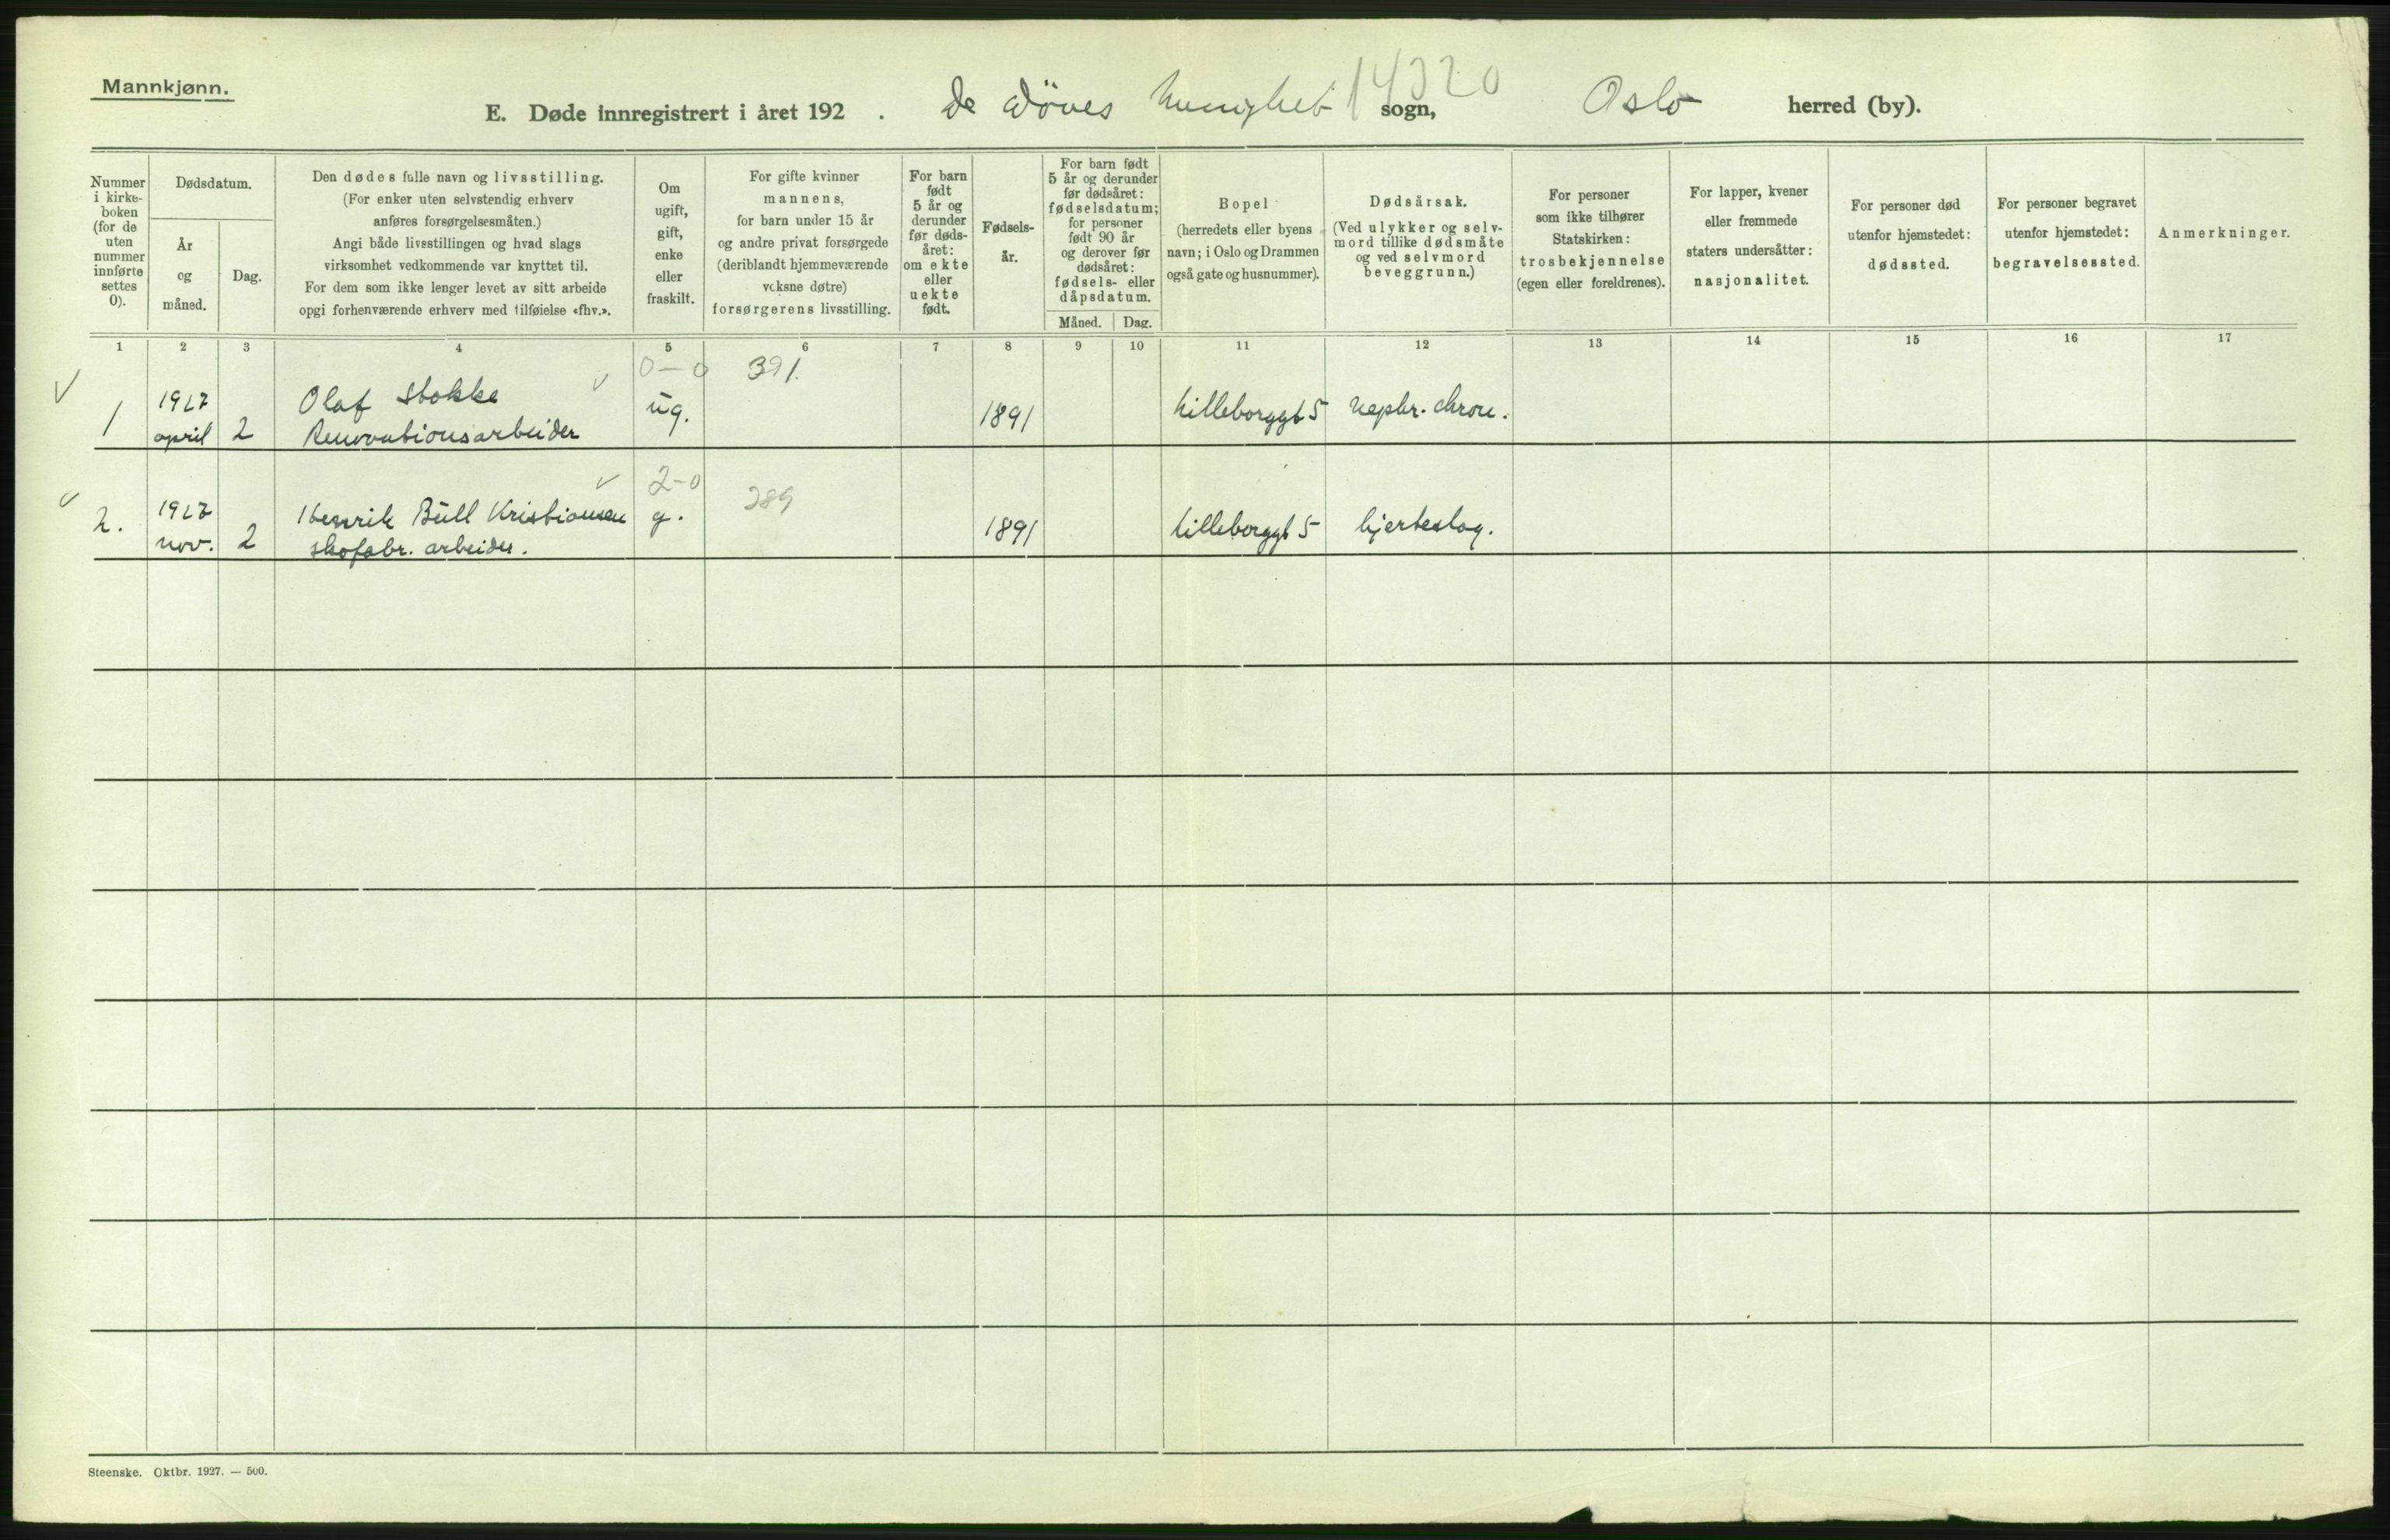 Mannkjønn.
E. Døde innregistrert i året 192 . De Döves Menighet sogn, Oslo herred (by).
14320
Nummer
i kirke-
boken
(for de
uten
nummer
innførte
settes
0).
Dødsdatum.
År
og
måned.
Dag.
Den dødes fulle navn og livsstilling.
(For enker uten selvstendig erhverv
anføres forsørgelsesmåten.)
Angi både livsstillingen og hvad slags
virksomhet vedkommende var knyttet til.
For dem som ikke lenger levet av sitt arbeide
opgi forhenværende erhverv med tilføielse «fhv.».
Om
ugift,
gift,
enke
eller
fraskilt.
For gifte kvinner
mannens,
for barn under 15 år
og andre privat forsørgede
(deriblandt hjemmeværende
voksne døtre)
forsørgerens livsstilling.
For barn
født
5 år og
derunder
før døds-
året:
om ekte
eller
uekte
født.
Fødsels-
år.
For barn født
5 år og derunder
før dødsåret:
fødselsdatum;
for personer
født 90 år
og derover før
dødsåret:
fødsels- eller
dåpsdatum.
Måned. Dag.
Bopel
(herredets eller byens
navn; i Oslo og Drammen
også gate og husnummer).
Dødsårsak.
(Ved ulykker og selv-
mord tillike dødsmåte
og ved selvmord
beveggrunn.)
For personer
som ikke tilhører
Statskirken:
trosbekjennelse
(egen eller foreldrenes).
For lapper, kvener
eller fremmede
staters undersåtter:
nasjonalitet.
For personer død
utenfor hjemstedet:
dødssted.
For personer begravet
utenfor hjemstedet:
begravelsessted.
Anmerkninger.
1 2 3 4 5 6 7 8 9 10 11 12 13 14 15 16 17
0-0 391.
1 1927 april 2 Olaf Stokke ug. 1891 Lilleborggt 5 nephr. chron.
Renovationsarbeider
2-0 289
2. 1927 nov. 2 Henrik Bull Kristiansen g. 1891 Lilleborggt 5 hjerteslag.
skofabr. arbeider.
Steenske. Oktbr. 1927. — 500.